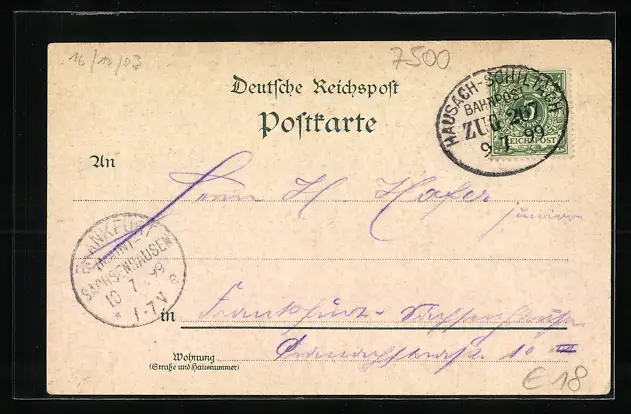 16/12/03
7500
Deutsche Reichspost
Postkarte
HAUSACH-SCHILTACH
BAHNPOST
ZUG 267
9 7 99
5
REICHSPOST
An
Herrn H. Hofer
junior
FRANKFURT
(MAIN)-
SACHSENHAUSEN
10 7 99
* 1-7N
in Frankfurt-Sachsenhausen
Cranachstrasse 10 III
Wohnung
(Straße und Hausnummer)
€ 18